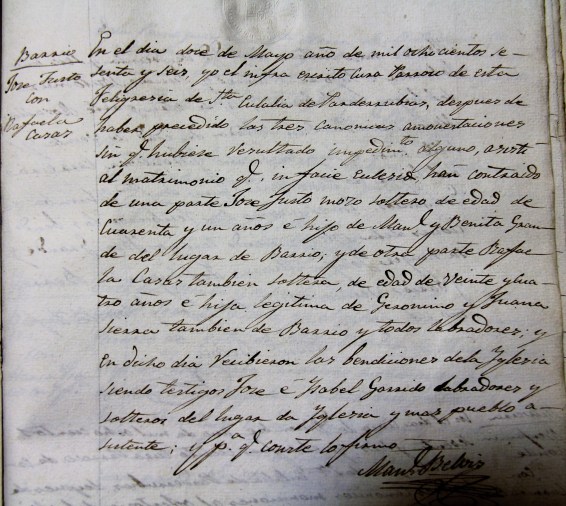 Barrio
Jose Justo
con
Rafaela
Casas
En el dia doce de Mayo año de mil ochocientos se-
senta y seis, yo el infra escrito cura Parroco de esta
Feligresia de Sta Eulalia de Banderrubias, despues de
haber precedido las tres canonicas amonestaciones
sin q.e hubiese resultado impedim.to alguno, asisti
al matrimonio q.e in facie eclesie han contraido
de una parte Jose Justo mozo soltero de edad de
Cuarenta y un años é hijo de Man.l y Benita Gran-
de del lugar de Barrio; y de otra parte Rafae-
la Casas tambien soltera, de edad de veinte y cua-
tro años é hija legitima de Geronimo y Juana
Sierra tambien de Barrio y todos labradores; y
en dicho dia recibieron las bendiciones de la Yglesia
siendo testigos Jose é Ysabel Garrido labradores y
solteros del lugar da Yglesia y mas pueblo a-
sistente; y p.a q.e conste lo firmo
Man.l